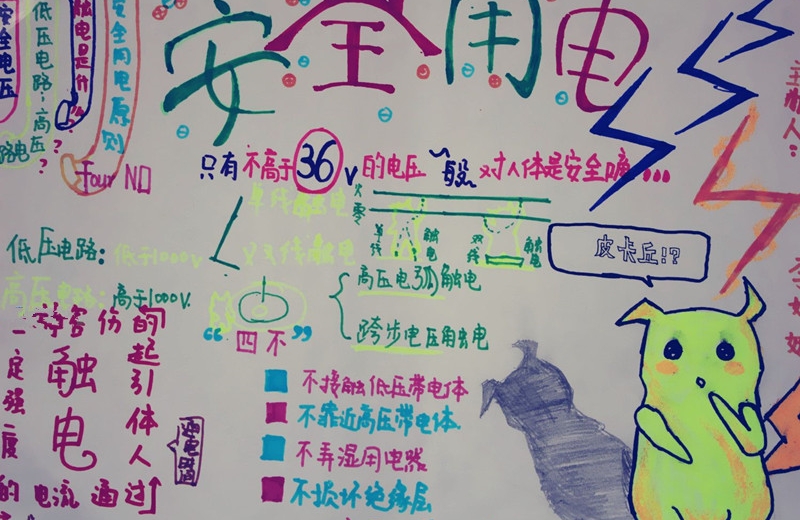 安全用电
安全电压
低压电路,高压
触电是什么?
安全用电原则
Four NO
只有不高于36V的电压一般对人体是安全哦...
单线触电
双线触电
火
零
单线
触电
双线
触电
皮卡丘!?
低压电路:低于1000V
高压电路:高于1000V.
高压电弧触电
跨步电压触电
“四不”
不接触低压带电体
不靠近高压带电体
不弄湿用电器
不损坏绝缘层
一定强度
的电流通过
人体引起
的伤害
触电